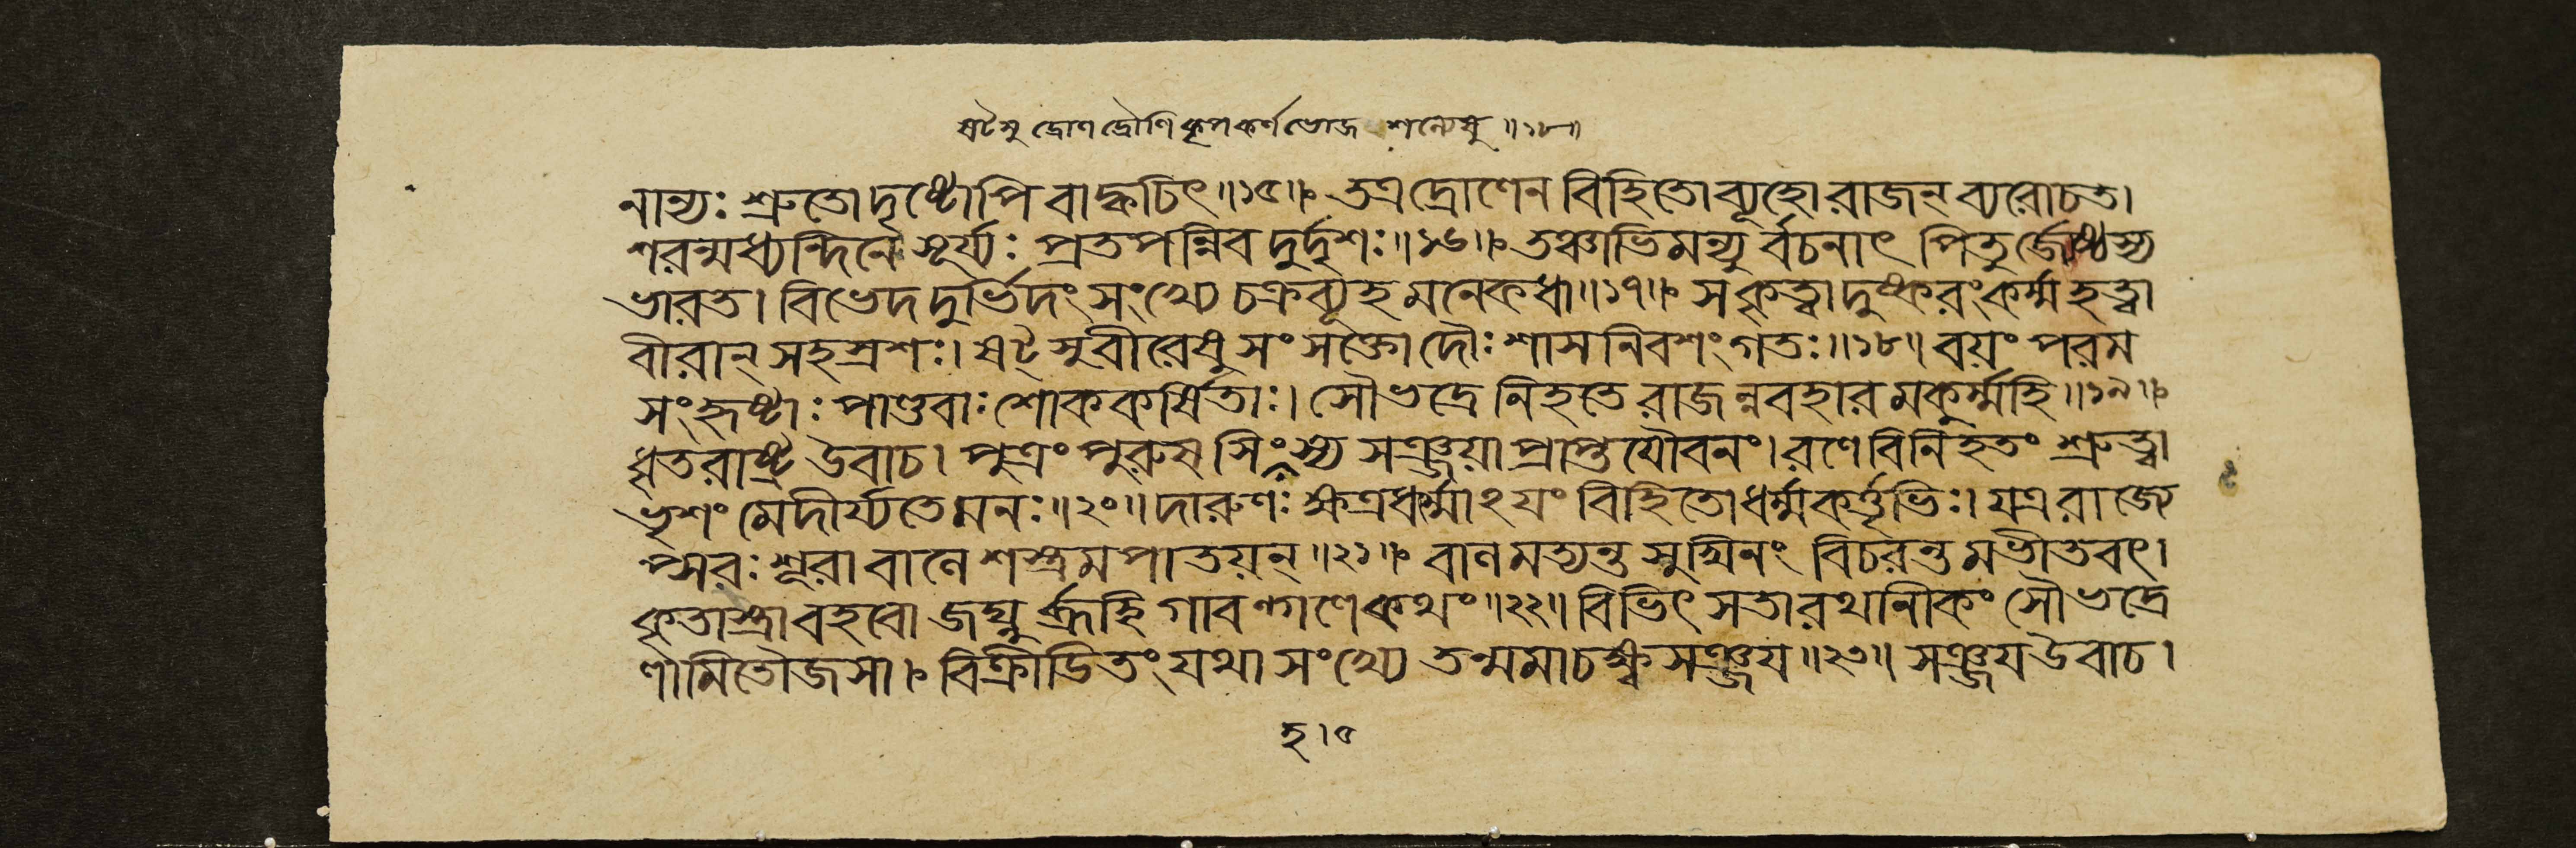 ষট্সু দ্রোণদ্রৌণিকৃপকর্ণভোজ শল্যেষু ॥১৮॥
নান্যঃ শ্রুতো দৃষ্টোপি বা ক্বচিৎ॥১৫॥ তত্র দ্রোণেন বিহিতো ব্যূহো রাজন্ ব্যরোচত।
শরন্মধ্যন্দিনে সূর্য্যঃ প্রতপন্নিব দুর্দৃশঃ॥১৬॥ তঞ্চাভিমন্যুর্বচনাৎ পিতুর্জ্যেষ্ঠস্য
ভারত। বিভেদ দুর্ভিদং সংখ্যে চক্রব্যূহমনেকধা॥১৭॥ স কৃত্বা দুষ্করং কর্ম্ম হত্বা
বীরান্ সহস্রশঃ। ষট্সু বীরেষু সংসক্তো দৌঃশাসনিবশং গতঃ॥১৮॥ বয়ং পরম
সংহৃষ্টাঃ পাণ্ডবাঃ শোককর্ষিতাঃ। সৌভদ্রে নিহতে রাজন্নবহারমকুর্ম্মহি॥১৯॥
ধৃতরাষ্ট্র উবাচ। পুত্রং পুরুষসিংহস্য সঞ্জয়াপ্রাপ্তযৌবনং। রণে বিনিহতং শ্রুত্বা
ভৃশং মে দীর্য্যতে মনঃ॥২০॥ দারুণঃ ক্ষত্রধর্ম্মাঽয়ং বিহিতো ধর্ম্মকর্ত্তৃভিঃ। যত্র রাজ্যে
প্সরঃ শূরা বালে শস্ত্রমপাতয়ন্॥২১॥ বালমত্যন্ত সুখিনং বিচরন্তমভীতবৎ।
কৃতাস্ত্রা বহবো জঘ্নুর্ব্রূহি গাবল্গণে কথং॥২২॥ বিভিৎসতা রথানীকং সৌভদ্রে
ণামিতৌজসা। বিক্রীডিতং যথা সংখ্যে তন্মমাচক্ষ্ব সঞ্জয়॥২৩॥ সঞ্জয় উবাচ।